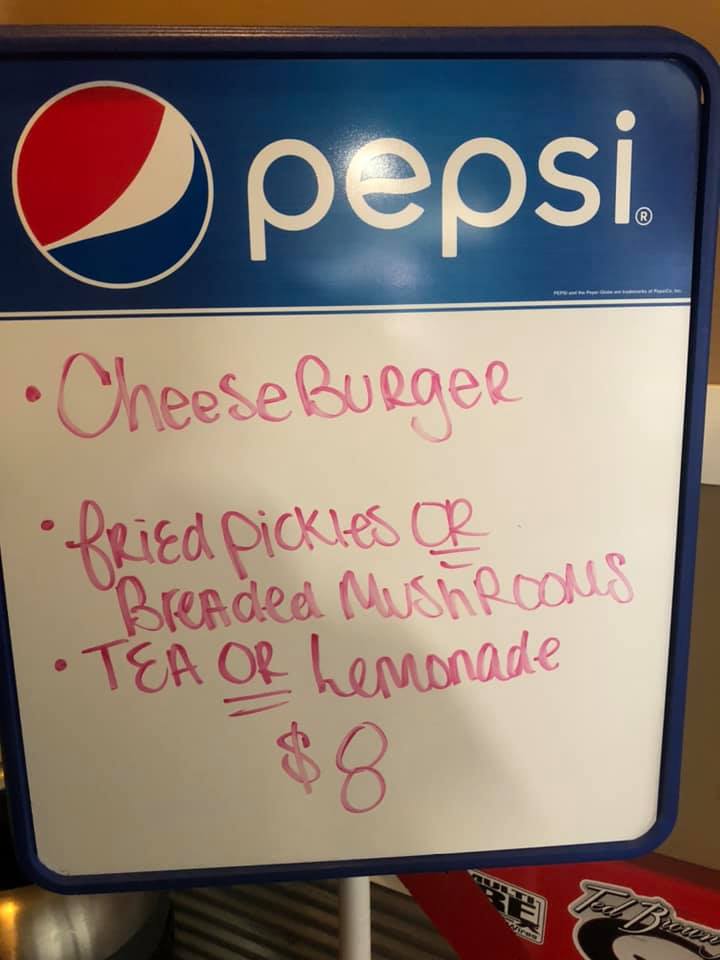 pepsi®
PEPSI and the Pepsi Globe are trademarks of PepsiCo, Inc.
• CheeseBuRgeR
• fRiEd PickLes OR
BreAded MushRooms
• TEA OR Lemonade
$8
MULTI
Ted Brown